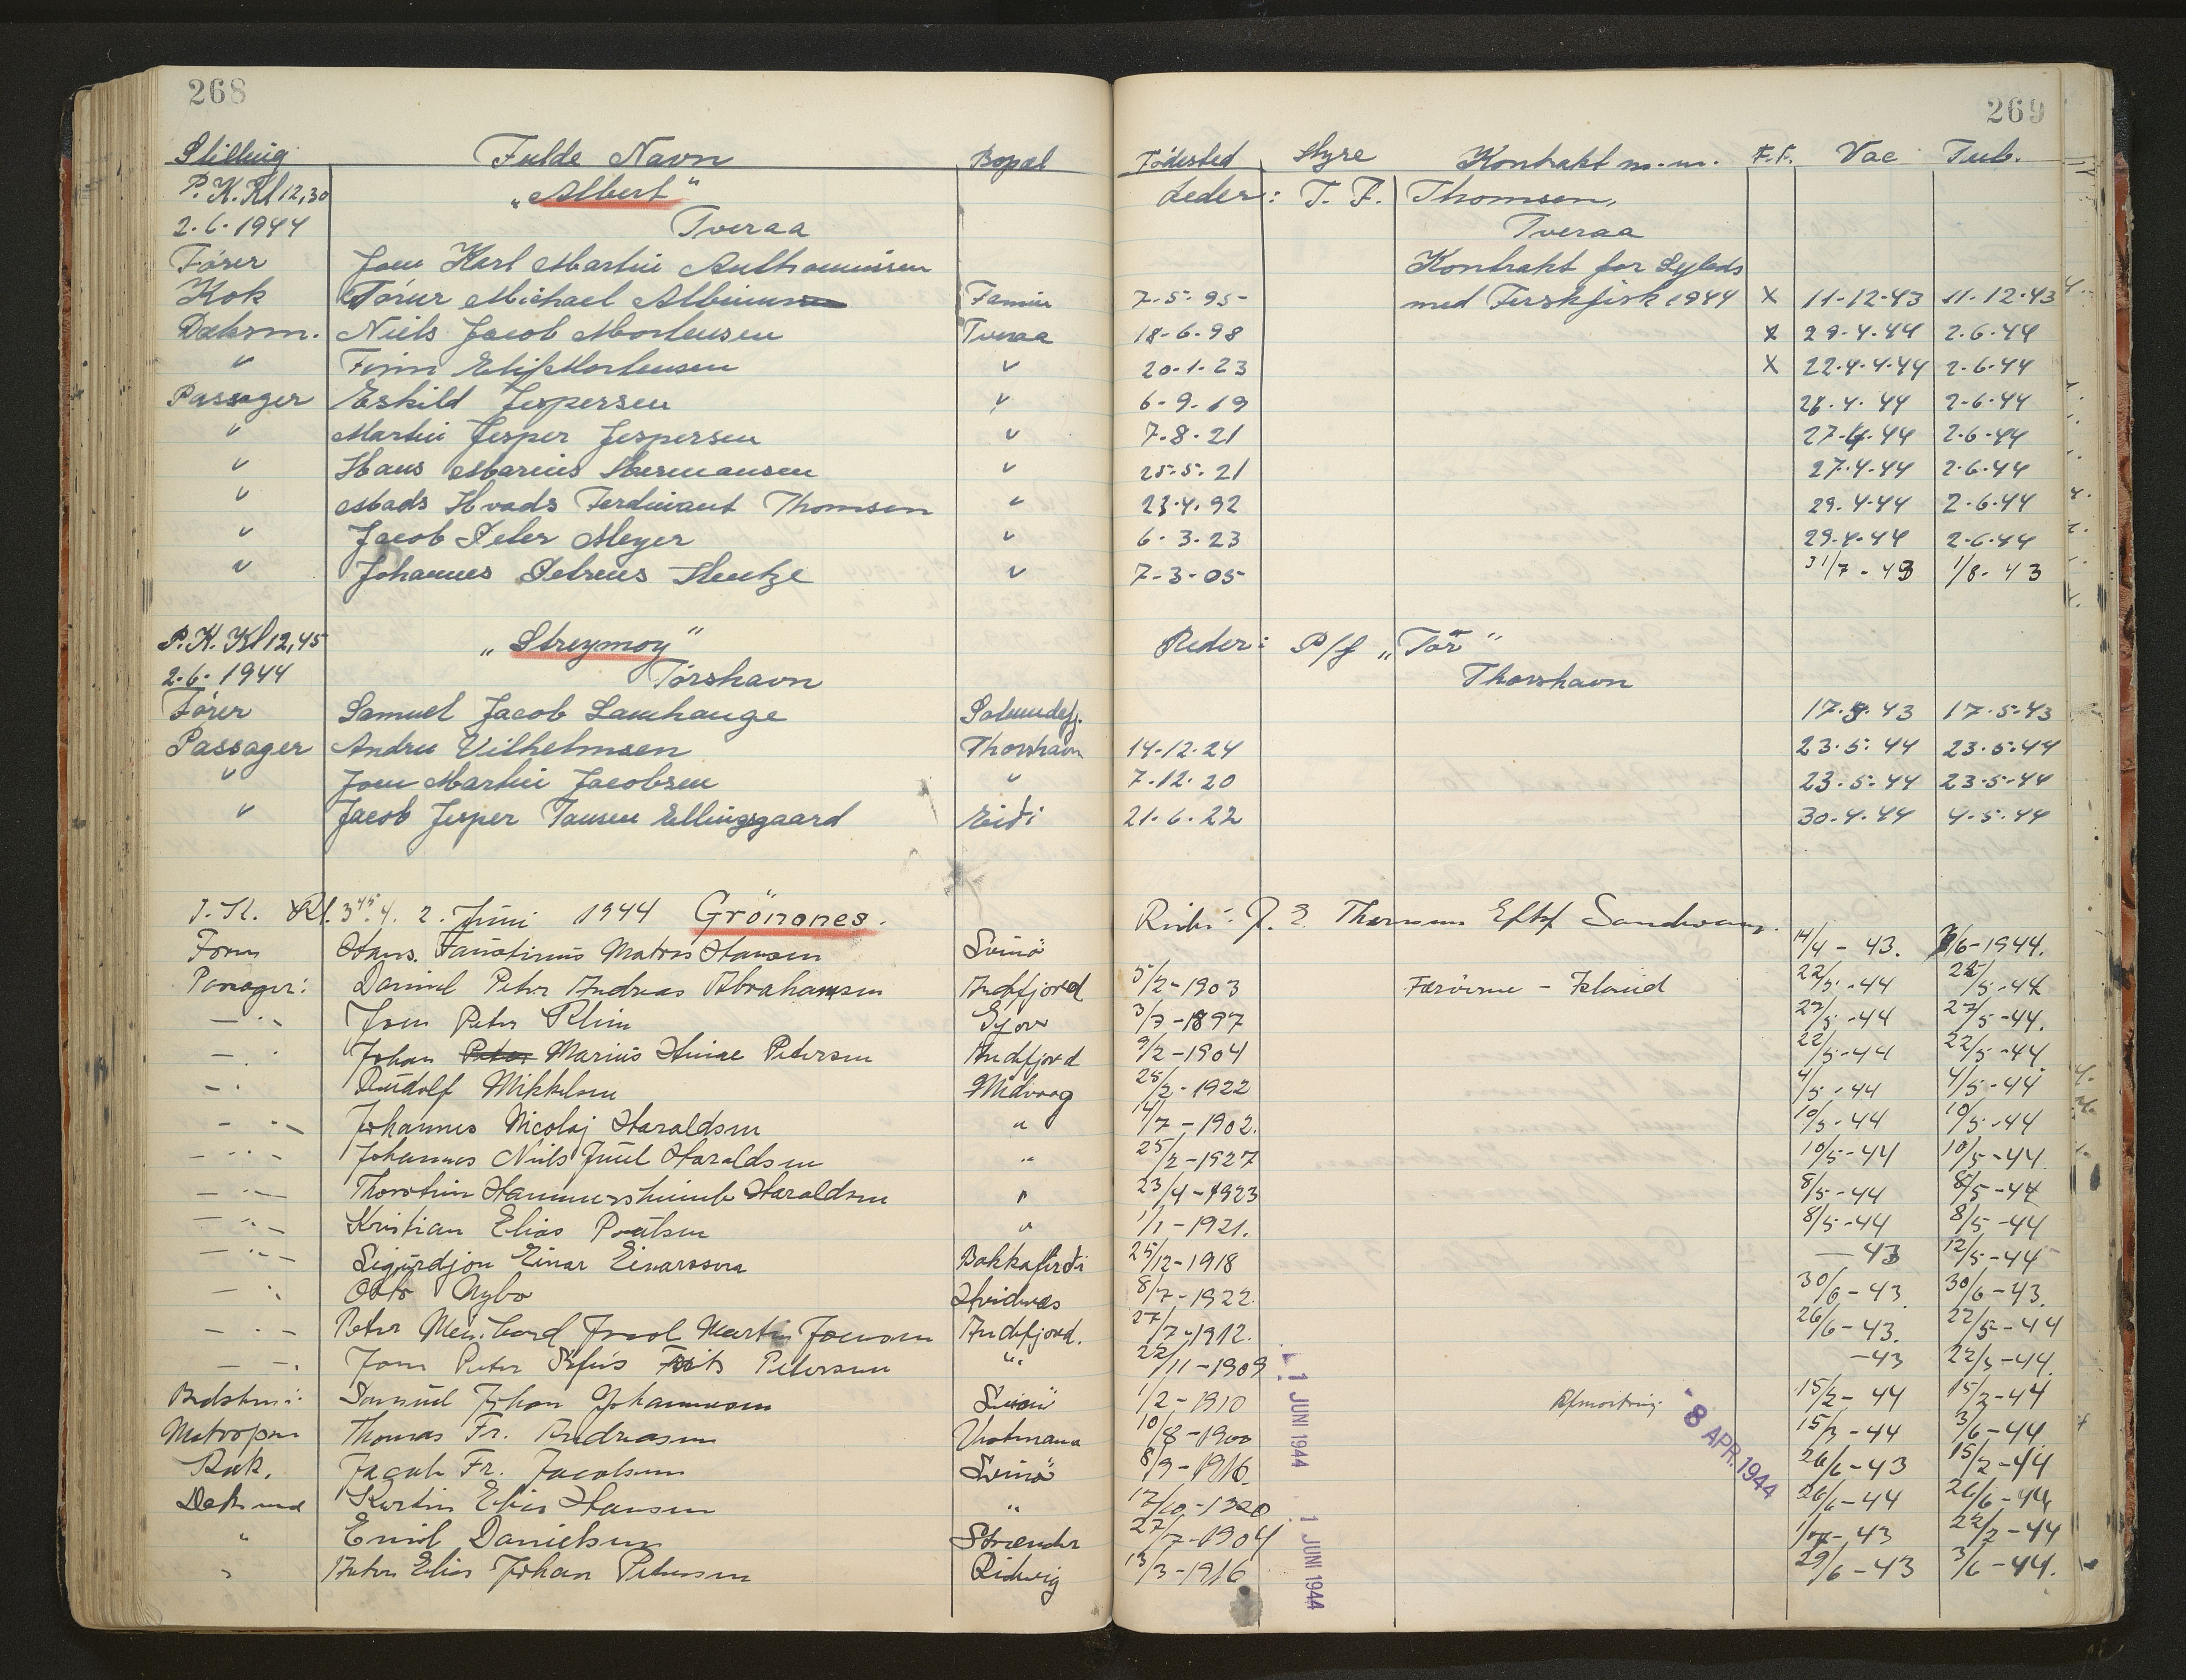 268
269
Stilling Fulde Navn Bopæl Fødested Hyre Kontrakt m.m. F.F. Vac Tub.
P.K. Kl 12,30 „Albert" Leder: T. F. Thomsen,
2.6.1944 Tveraa Tveraa
Fører Joen Karl Martin Kontrakt for Sejlads
Kok Tórur Michael Famiu 7-5-95- med Ferskfisk 1944 X 11-12-43 11-12-43
Dæksm. Niels Jacob Mortensen Tveraa 18-6-98 X 29-4-44 2.6-44
" Finn Mortensen " 20-1-23 X 22.4.44 2.6.44
Passager Eskild Jespersen " 6-9-19 44 2-6-44
" Martin Jesper Jespersen " 7-8-21 27-4-44 2.6-44
" Hans Marius Hermansen " 25-5-21 27-4-44 2.6.44
" Mads Hvads Ferdinant Thomsen " 23.4.92 29.4-44 2.6.44
" Jacob Peter Meyer " 6-3-23 29-4-44 2.6.44
" Johannes Petreus Hentze " 7-3-05 31/7-43 1/8-43
P.K. Kl 12,45 „Streymoy" Reder: P/f „Tór"
2.6.1944 Tórshavn Thorshavn
Fører Samuel Jacob Lamhauge 17.5.43 17.5.43
Passager Andreu Vilhelmsen Thorshavn 14-12-24 23.5.44 23.5.44
" Joen Martin Jacobsen " 7-12-20 23.5.44 23.5.44
" Jacob Jesper Jansen Ellingsgaard Eiði 21-6-22 30-4-44 4.5.44
Kl. 3 45. 2. Juni 1944 Grönanes. J. E. Thomsen Eftf Sandvaag.
Hans Matras Hansen Svinö 14/4-43. /6-1944.
Passager: Daniel Peter Andreas Abrahamsen Andefjord 5/2-1903 Færöerne - Island 22/5-44 22/5-44
— " — Joen Peter Klein Gjov 3/7-1897 27/5-44 27/5-44.
— " Johan Marius Petersen Andefjord 9/2-1904 22/5-44 22/5-44
— " Rudolf Mikkelsen Midvaag 25/2-1922 4/5-44 4/5-44
— " — Johannes Nicolaj Haraldsen " 14/7-1902. 10/5-44 10/5-44
— " — Johannes Niels Juul Haraldsen " 25/2-1927 10/5-44 10/5-44
— " — Haraldsen " 23/4-1923 8/5-44 8/5-44
— " — Kristian Elias Poulsen " 1/1-1921. 8/5-44 8/5-44
— " — Sigurdjon Einar Einarsson Bakkafirði 25/12-1918 — 43 12/5-44
— " Otto Nybo Hvidnæs 8/7-1922. 30/6-43 30/6-43.
— " — Peter Martin Joensen Andefjord. 27/7-1912. 26/6-43. 22/5-44
— " Joen Peter Petersen " 22/11-1909 -43 22/5-44.
Bedstm: Samuel Johan Johannesen Svinö 1/2-1910 1 JUNI 1944 Afmönstring - 8 APR. 1944 15/2-44 15/2-44
Thomas Fr. Andreasen 10/8-1900 15/2-44 3/6-44
Kok. Jacob Fr. Jacobsen Svinö 8/9-1916. 26/6-43 15/2-44
Elias Hansen " 17/10-1920 1 JUNI 1944 26/6-44 26/6-44
" Emil Danielsen Strænder 27/7-1904 43 22/2-44
" Elias Johan Petersen Ridvig 13/3-1916 29/6-43 3/6-44.